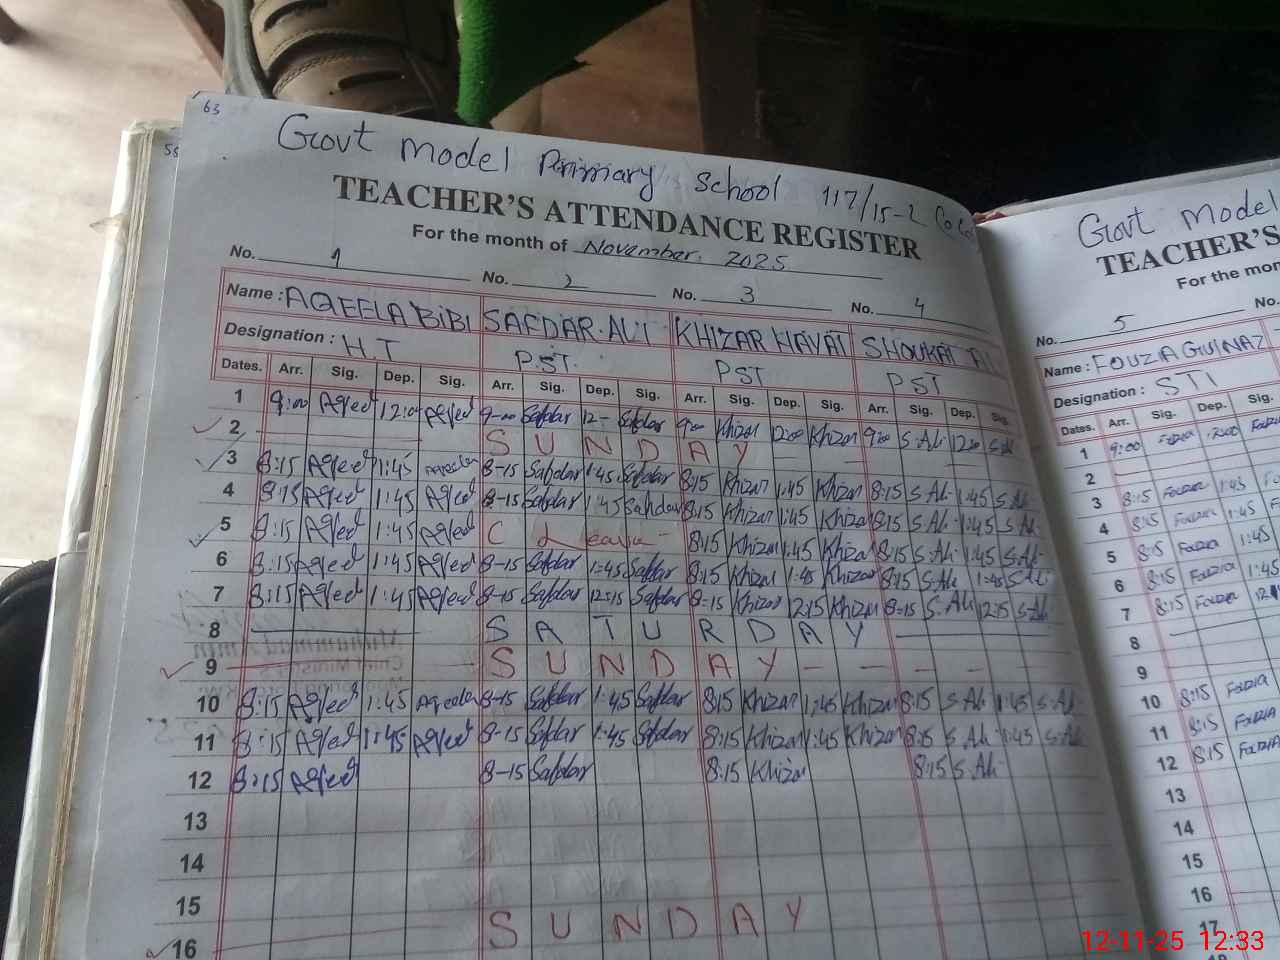 63
Govt Model Primary School 117/15-L
TEACHER'S ATTENDANCE REGISTER
For the month of November. 2025
No. 1 No. 2 No. 3 No. 4
Name : AQEELA BIBI SAFDAR ALI KHIZAR HAYAT SHOUKAT ALI
Designation : H.T P.ST. PST PST
Dates. Arr. Sig. Dep. Sig. Arr. Sig. Dep. Sig. Arr. Sig. Dep. Sig. Arr. Sig. Dep. Sig.
1 9:00 Aqeel 12:00 Aqeel 9-00 Safdar 12- Safdar 9:00 Khizar 12:00 Khizar 9:00 S.Ali 12:00 S.Ali
2 SUNDAY
3 8:15 Aqeel 1:45 Aqeela 8-15 Safdar 1:45 Safdar 8:15 Khizar 1:45 Khizar 8:15 S.Ali 1:45 S.Ali
4 8:15 Aqeel 1:45 Aqeel 8-15 Safdar 1:45 Safdar 8:15 Khizar 1:45 Khizar 8:15 S.Ali 1:45 S.Ali
5 8:15 Aqeel 1:45 Aqeel C Leave 8:15 Khizar 1:45 Khizar 8:15 S.Ali 1:45 S.Ali
6 8:15 Aqeel 1:45 Aqeel 8-15 Safdar 1:45 Safdar 8:15 Khizar 1:45 Khizar 8:15 S.Ali 1:45 S.Ali
7 8:15 Aqeel 1:45 Aqeel 8-15 Safdar 12:15 Safdar 8-15 Khizar 12:15 Khizar 8-15 S.Ali 12:15 S.Ali
8 SATURDAY
9 SUNDAY - - - - -
10 8:15 Aqeel 1:45 Aqeela 8-15 Safdar 1:45 Safdar 8:15 Khizar 1:45 Khizar 8:15 S.Ali 1:45 S.Ali
11 8:15 Aqeel 1:45 Aqeel 8-15 Safdar 1:45 Safdar 8:15 Khizar 1:45 Khizar 8:15 S.Ali 1:45 S.Ali
12 8:15 Aqeel 8-15 Safdar 8:15 Khizar 8:15 S.Ali
13
14
15
16 SUNDAY
Govt Model
TEACHER'S
For the
No. 5 No.
Name : FOUZIA GULNAZ
Designation : STI
Dates. Arr. Sig. Dep. Sig.
1 9:00 Fouzia 12:00 Fouzia
2
3 8:15 Fouzia 1:45
4 8:15 Fouzia 1:45
5 8:15 Fouzia 1:45
6 8:15 Fouzia 1:45
7 8:15 Fouzia
8
9
10 8:15 Fouzia
11 8:15 Fouzia
12 8:15 Fouzia
13
14
15
16
17
12-11-25 12:33